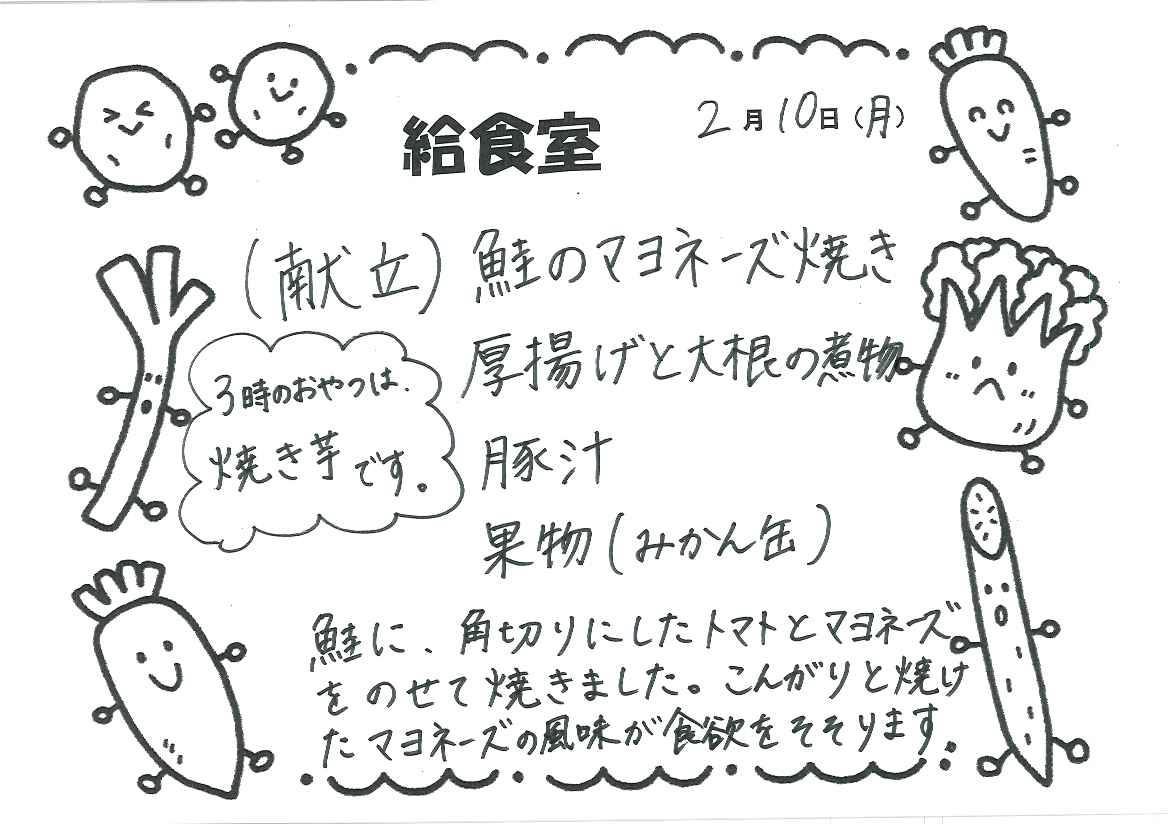 給食室
2月10日(月)
(献立)鮭のマヨネーズ焼き
厚揚げと大根の煮物
豚汁
果物(みかん缶)
3時のおやつは、
焼き芋です。
鮭に、角切りにしたトマトとマヨネーズ
をのせて焼きました。こんがりと焼け
たマヨネーズの風味が食欲をそそります。